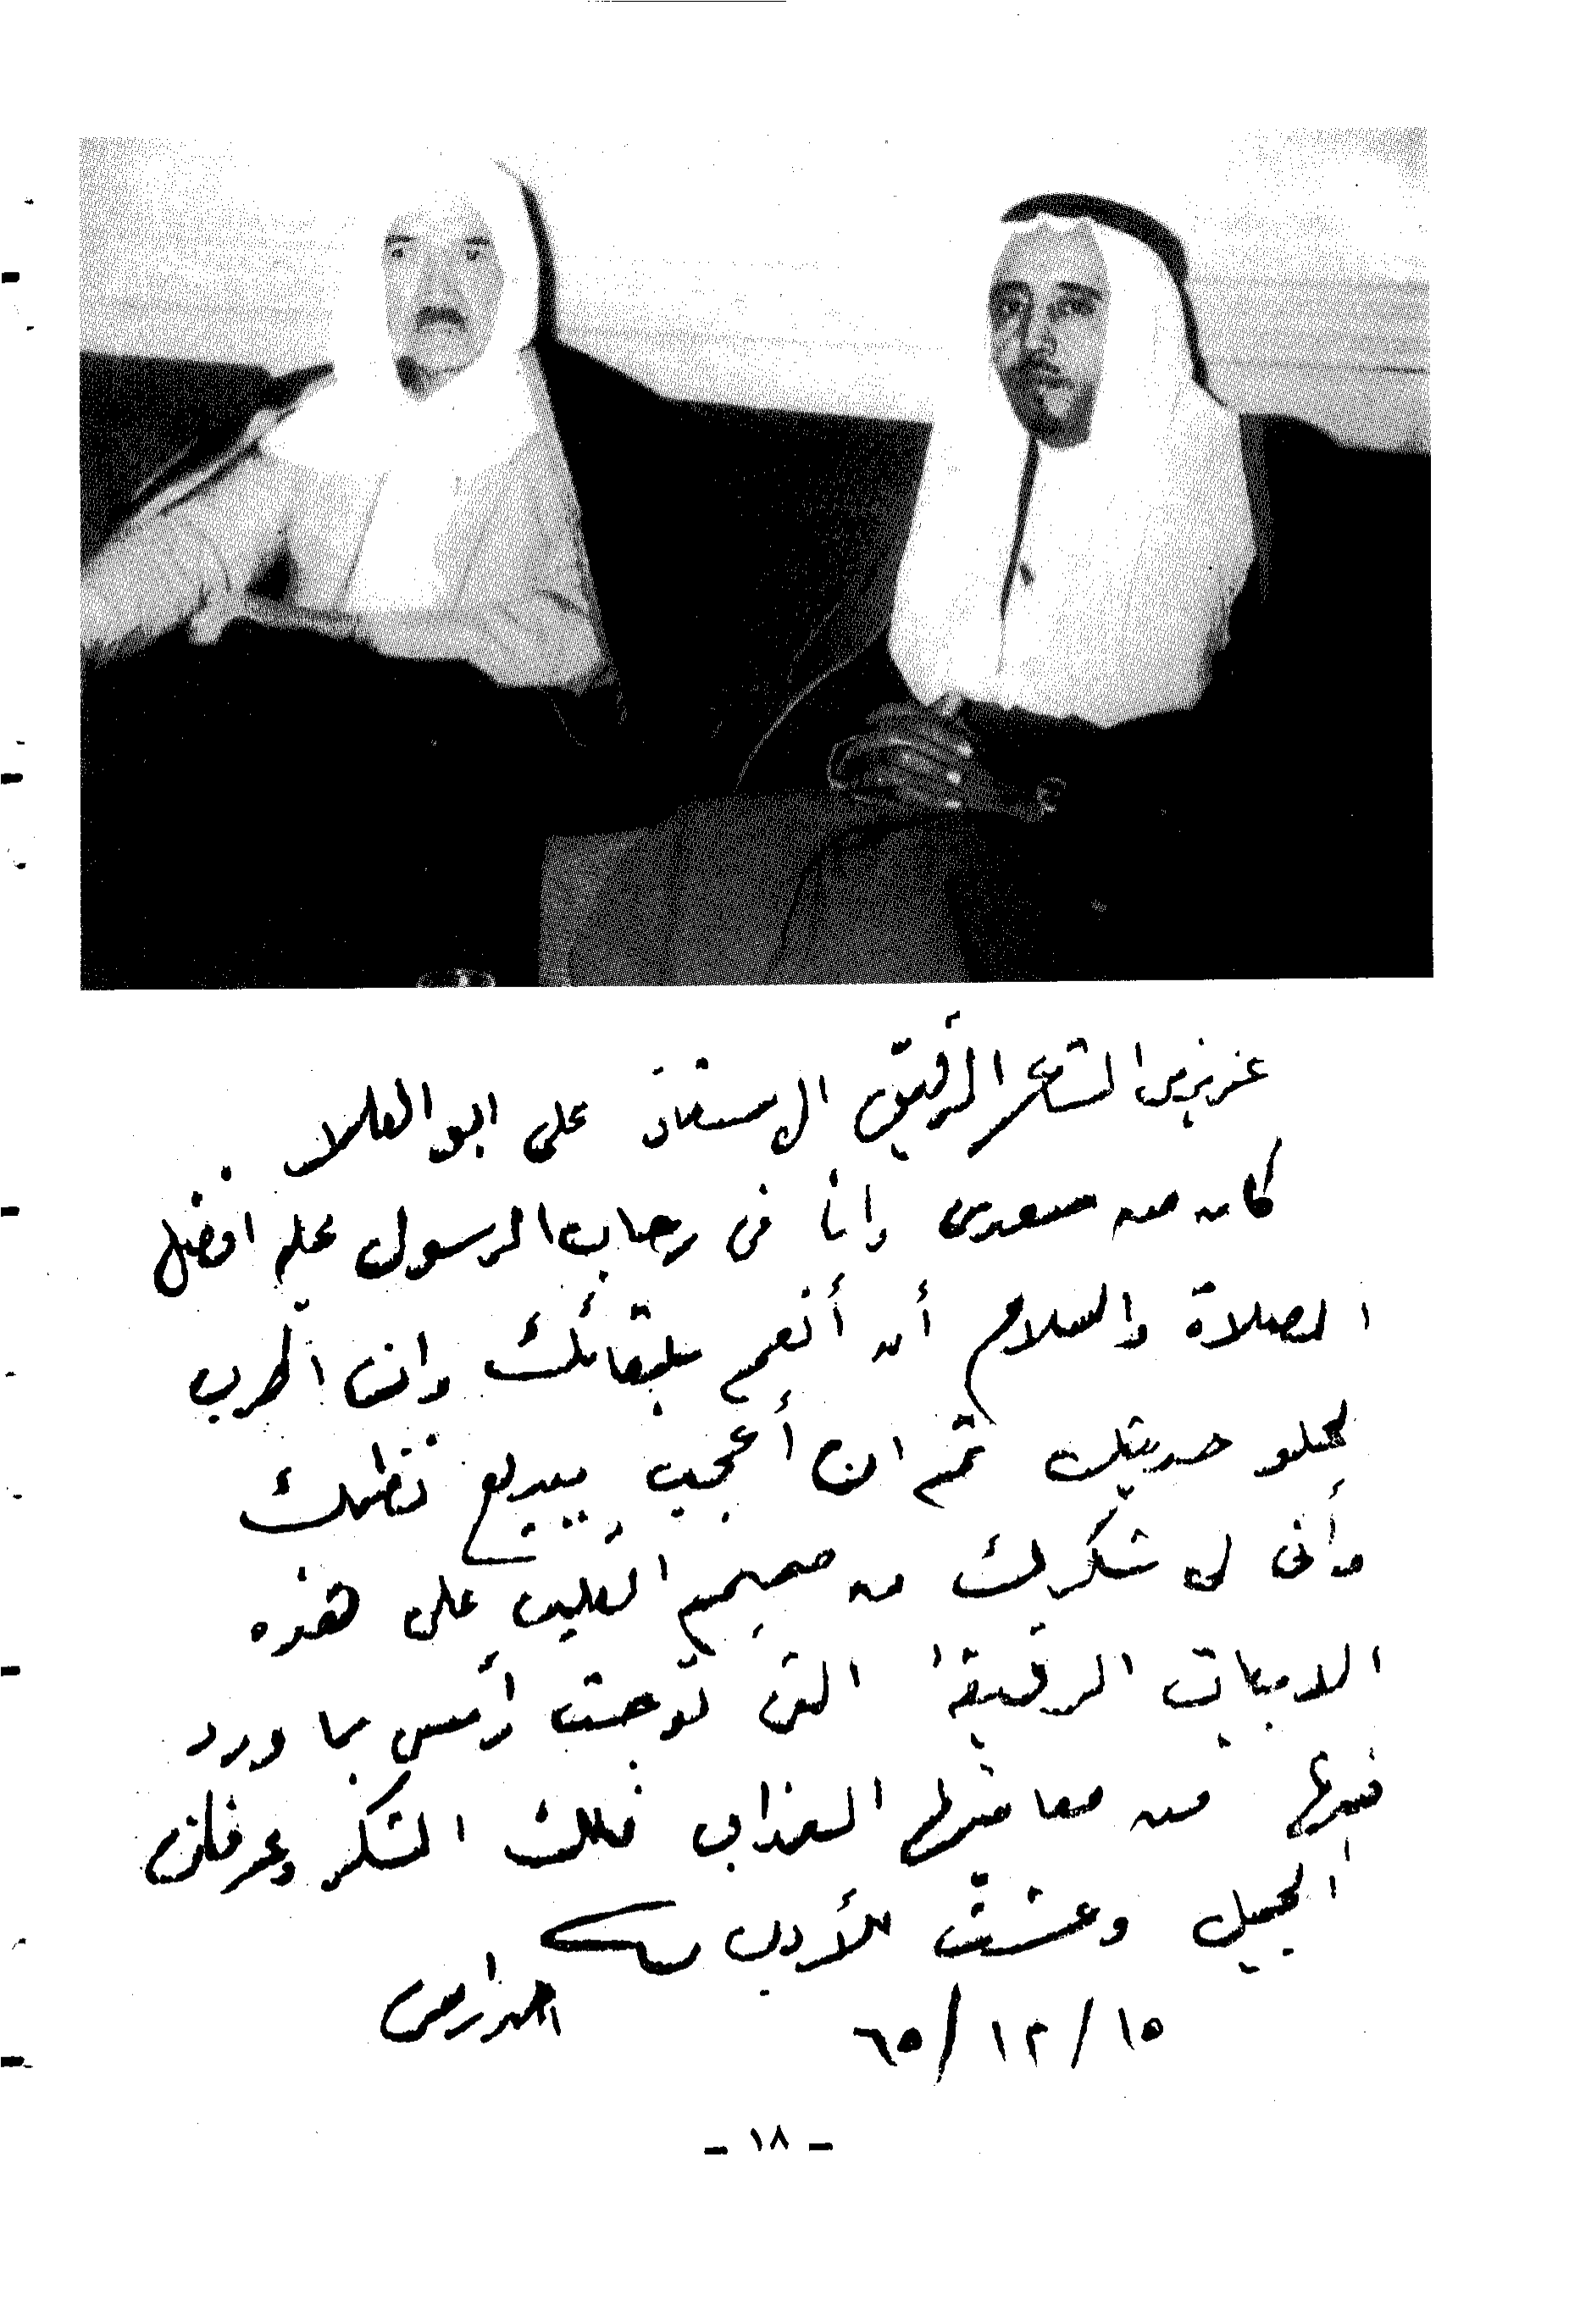 عزيزى الشاعر الرقيق الاستاذ على ابو العلا
كان من سعدى وانا فى رحاب الرسول عليه افضل
الصلاة والسلام أن أنعم بلقائك وان اطرب
لحلو حديثك ثم ان أعجب ببديع نظمك
وأنى لى شكرك من صميم القلب على هذه
الابيات الرقيقة التى توجت رأسى بما ورد
فيها من معانيها العذاب فلك الشكر وعرفان
الجميل وعشت للأدب
احمد رامى
١٥ / ١٢ / ٦٥
- ١٨ -